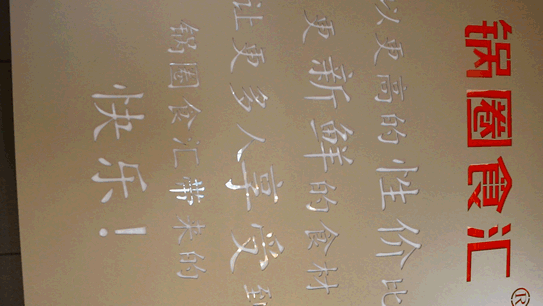 锅圈食汇®
以更高的性价比
更新鲜的食材
让更多人享受到
锅圈食汇带来的
快乐！